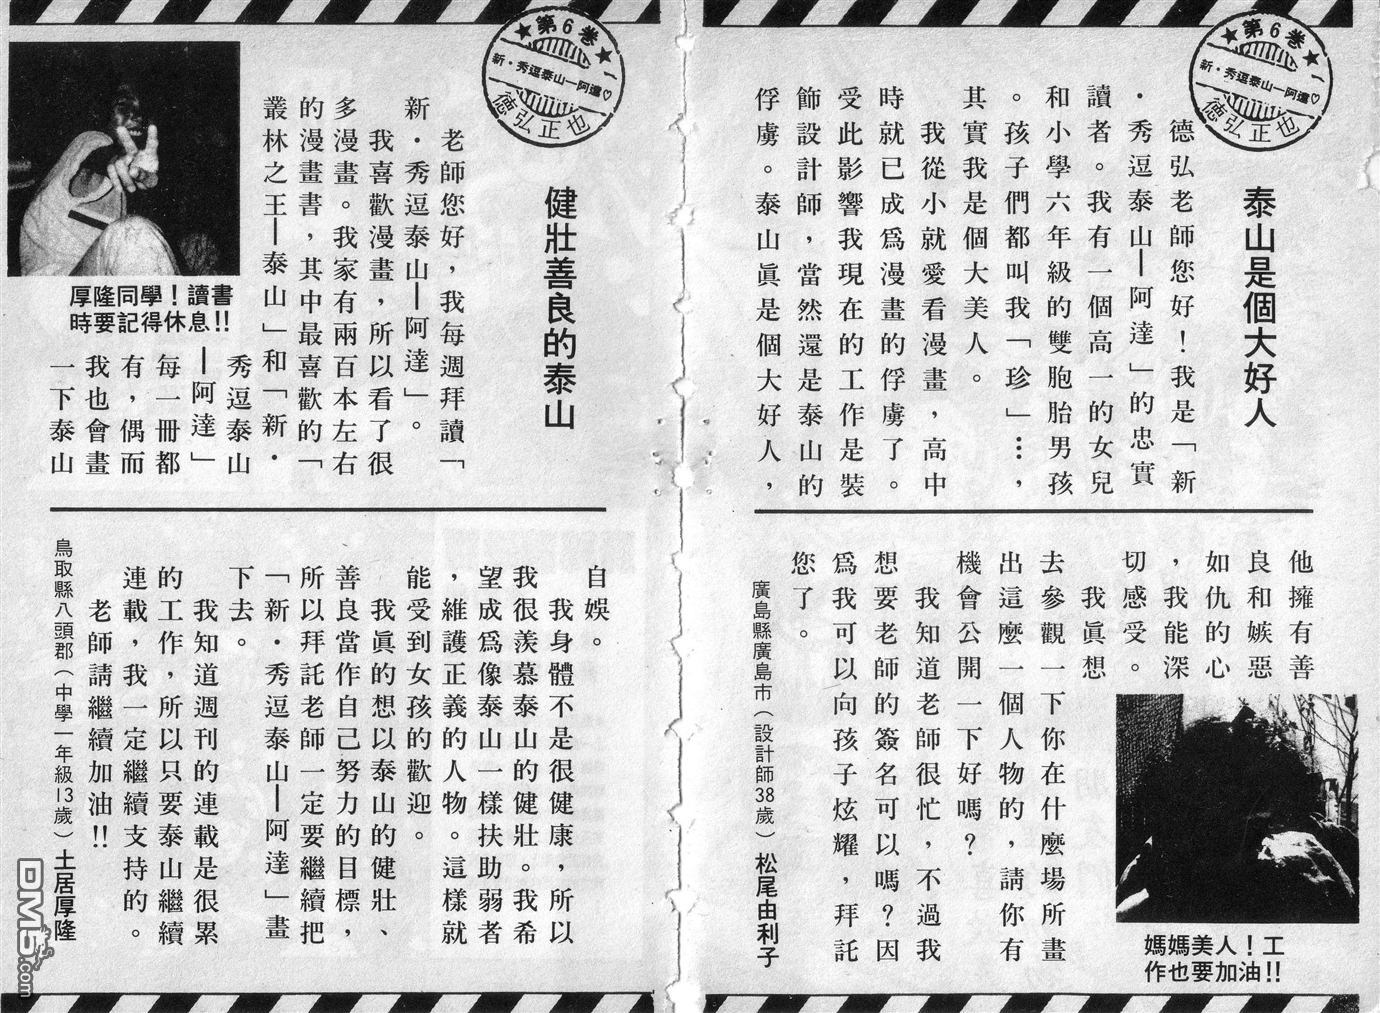 ★第6巻★
新・秀逗泰山—阿達♡
德弘正也
泰山是個大好人
德弘老師您好！我是「新
・秀逗泰山—阿達」的忠實
讀者。我有一個高一的女兒
和小學六年級的雙胞胎男孩
。孩子們都叫我「珍」…，
其實我是個大美人。
我從小就愛看漫畫，高中
時就已成爲漫畫的俘虜了。
受此影響我現在的工作是裝
飾設計師，當然還是泰山的
俘虜。泰山眞是個大好人，
他擁有善
良和嫉惡
如仇的心
，我能深
切感受。
我眞想
去參觀一下你在什麼場所畫
出這麼一個人物的，請你有
機會公開一下好嗎？
我知道老師很忙，不過我
想要老師的簽名可以嗎？因
爲我可以向孩子炫耀，拜託
您了。
廣島縣廣島市（設計師38歲）松尾由利子
媽媽美人！工
作也要加油!!
★第6巻★
新・秀逗泰山—阿達♡
德弘正也
健壯善良的泰山
老師您好，我每週拜讀「
新・秀逗泰山—阿達」。
我喜歡漫畫，所以看了很
多漫畫。我家有兩百本左右
的漫畫書，其中最喜歡的「
叢林之王—泰山」和「新・
秀逗泰山
—阿達」
每一冊都
有，偶而
我也會畫
一下泰山
厚隆同學！讀書
時要記得休息!!
自娛。
我身體不是很健康，所以
我很羨慕泰山的健壯。我希
望成爲像泰山一樣扶助弱者
，維護正義的人物。這樣就
能受到女孩的歡迎。
我眞的想以泰山的健壯、
善良當作自己努力的目標，
所以拜託老師一定要繼續把
「新・秀逗泰山—阿達」畫
下去。
我知道週刊的連載是很累
的工作，所以只要泰山繼續
連載，我一定繼續支持的。
老師請繼續加油!!
鳥取縣八頭郡（中學一年級13歲）土居厚隆
DM5.com